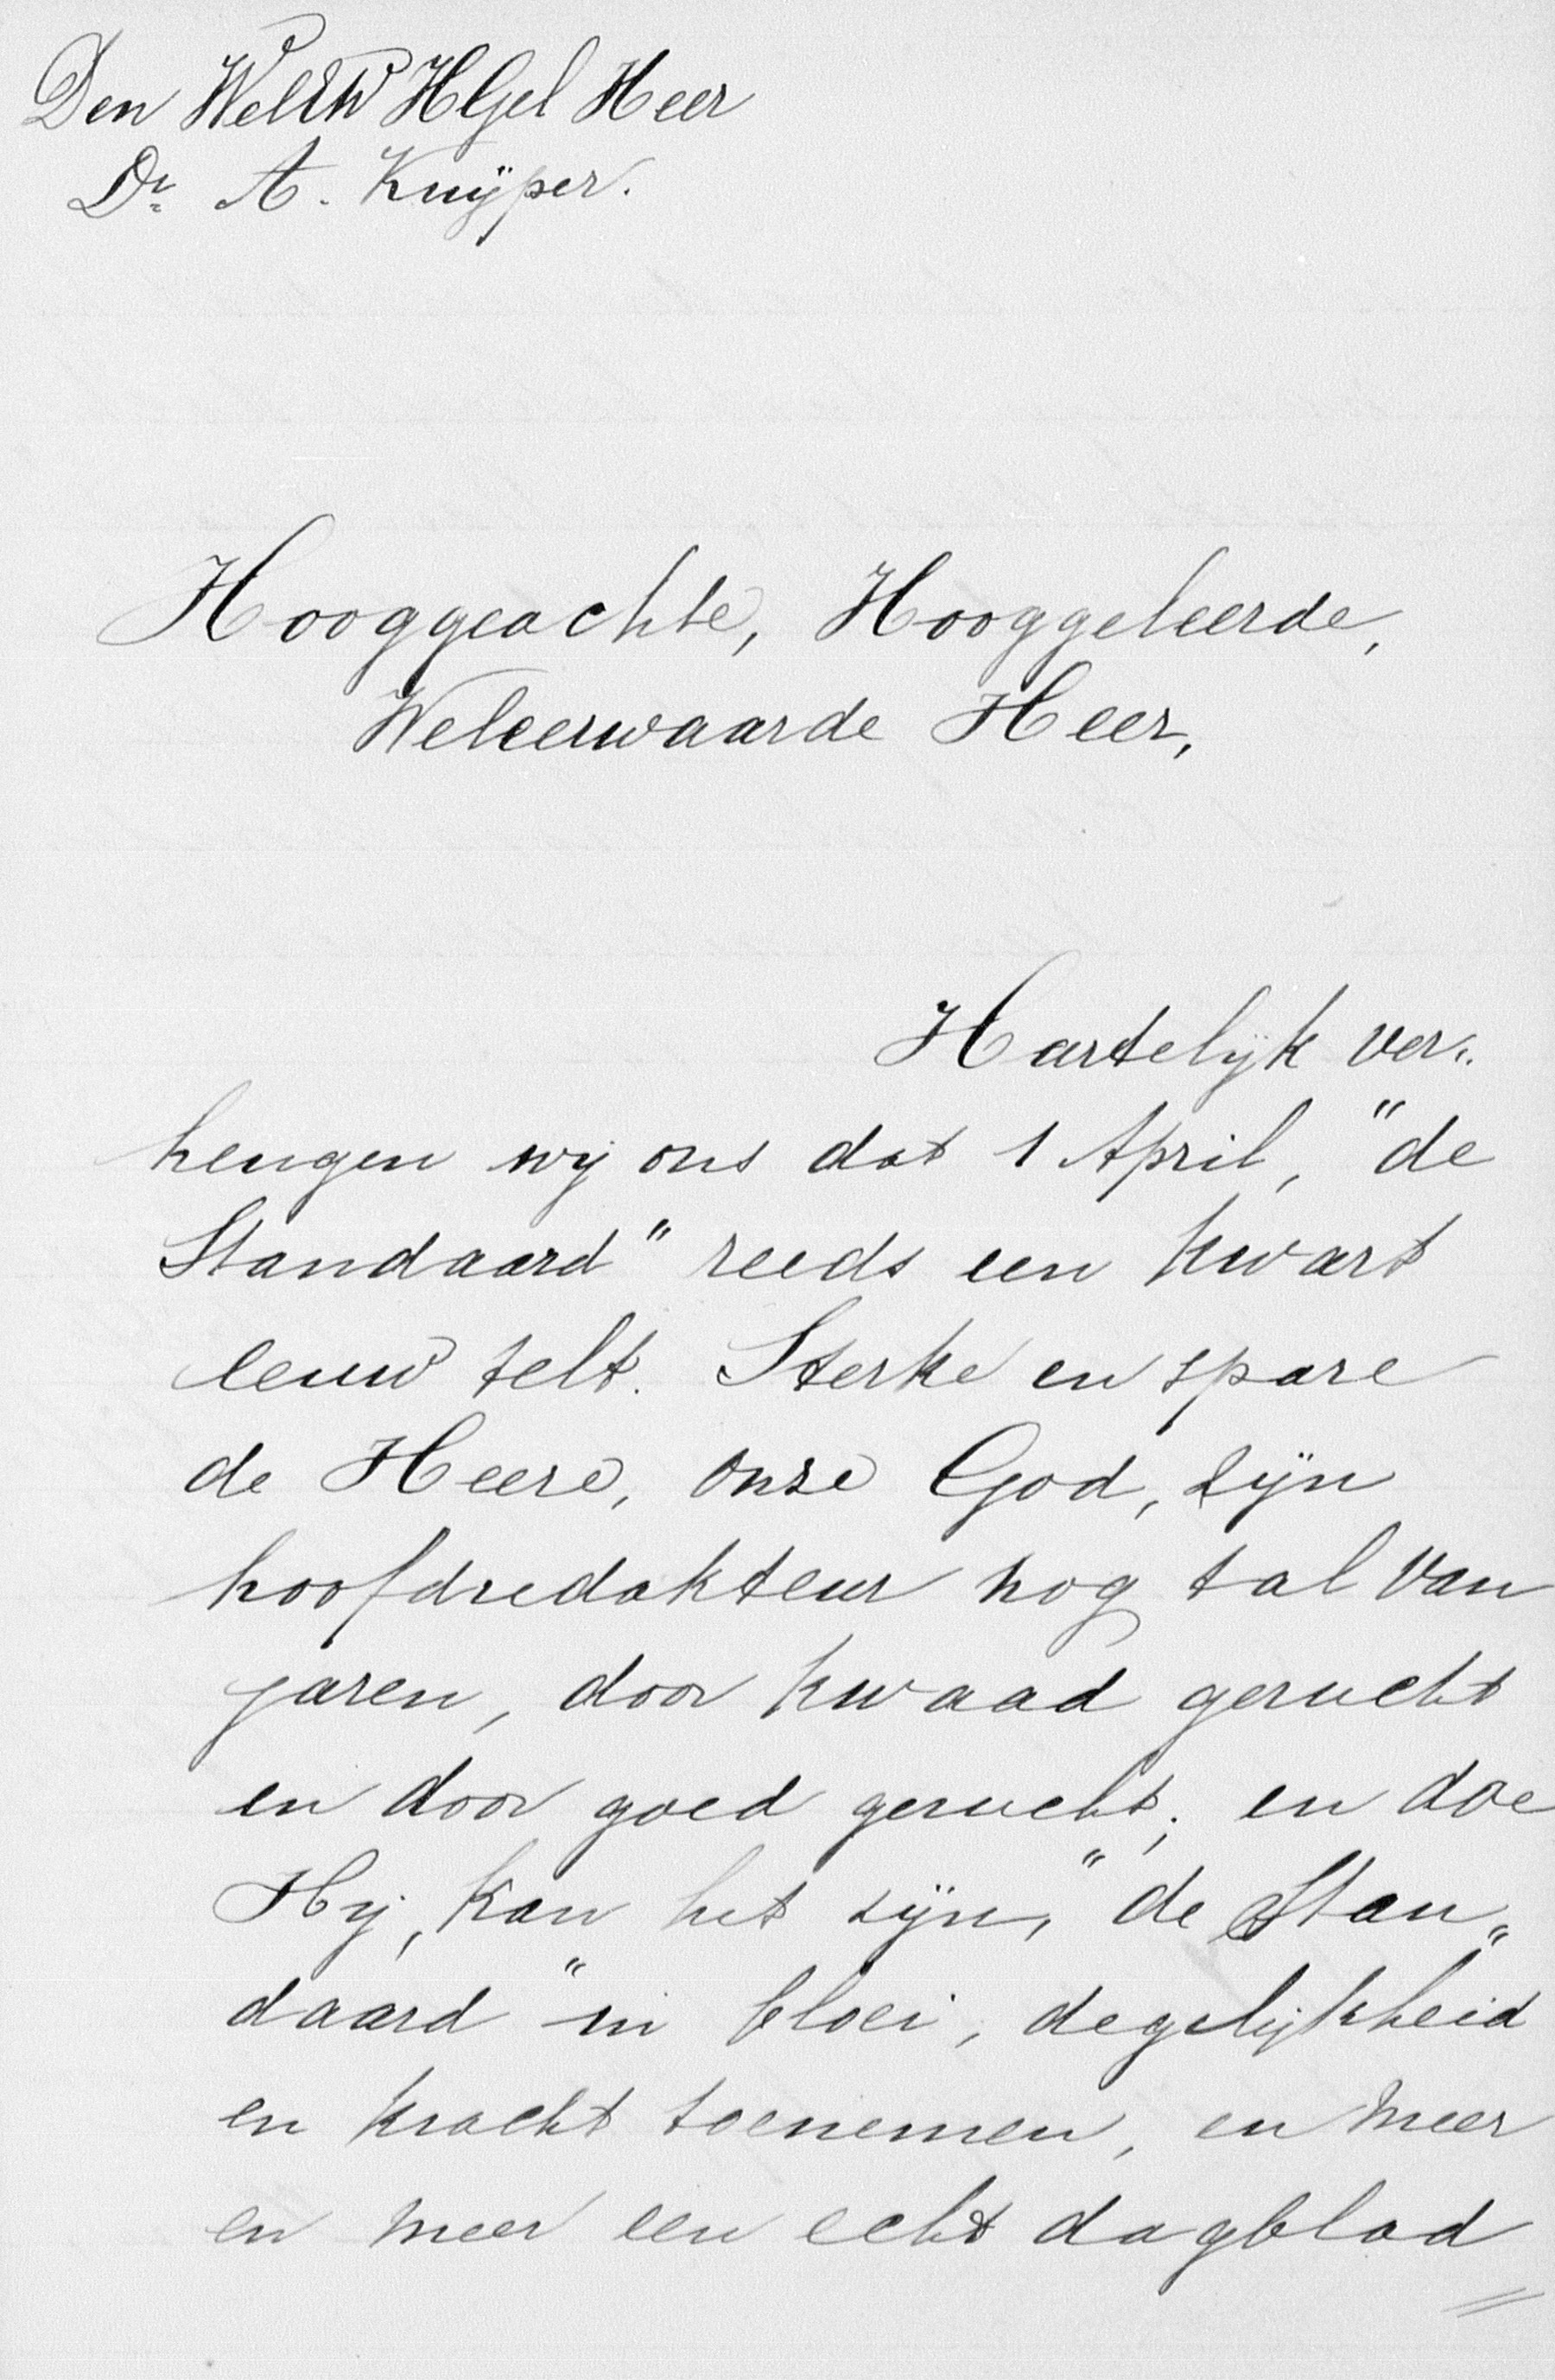 Den WelEW HGel Heer
Dr. A. Kuÿper.
Hooggeachte, Hooggeleerde,
Weleerwaarde Heer,
Hartelijk ver„
heugen wij ons dat 1 April, "de
Standaard" reeds een kwart
eeuw telt. Sterke en spare
de Heere, onze God, zijn
hoofdredakteur nog tal van
jaren, door kwaad gerucht
en door goed gerucht; en doe
Hij, kan het zijn, "de Stan„
daard" in bloei, degelijkheid
en kracht toenemen, en meer
en meer een echt dagblad